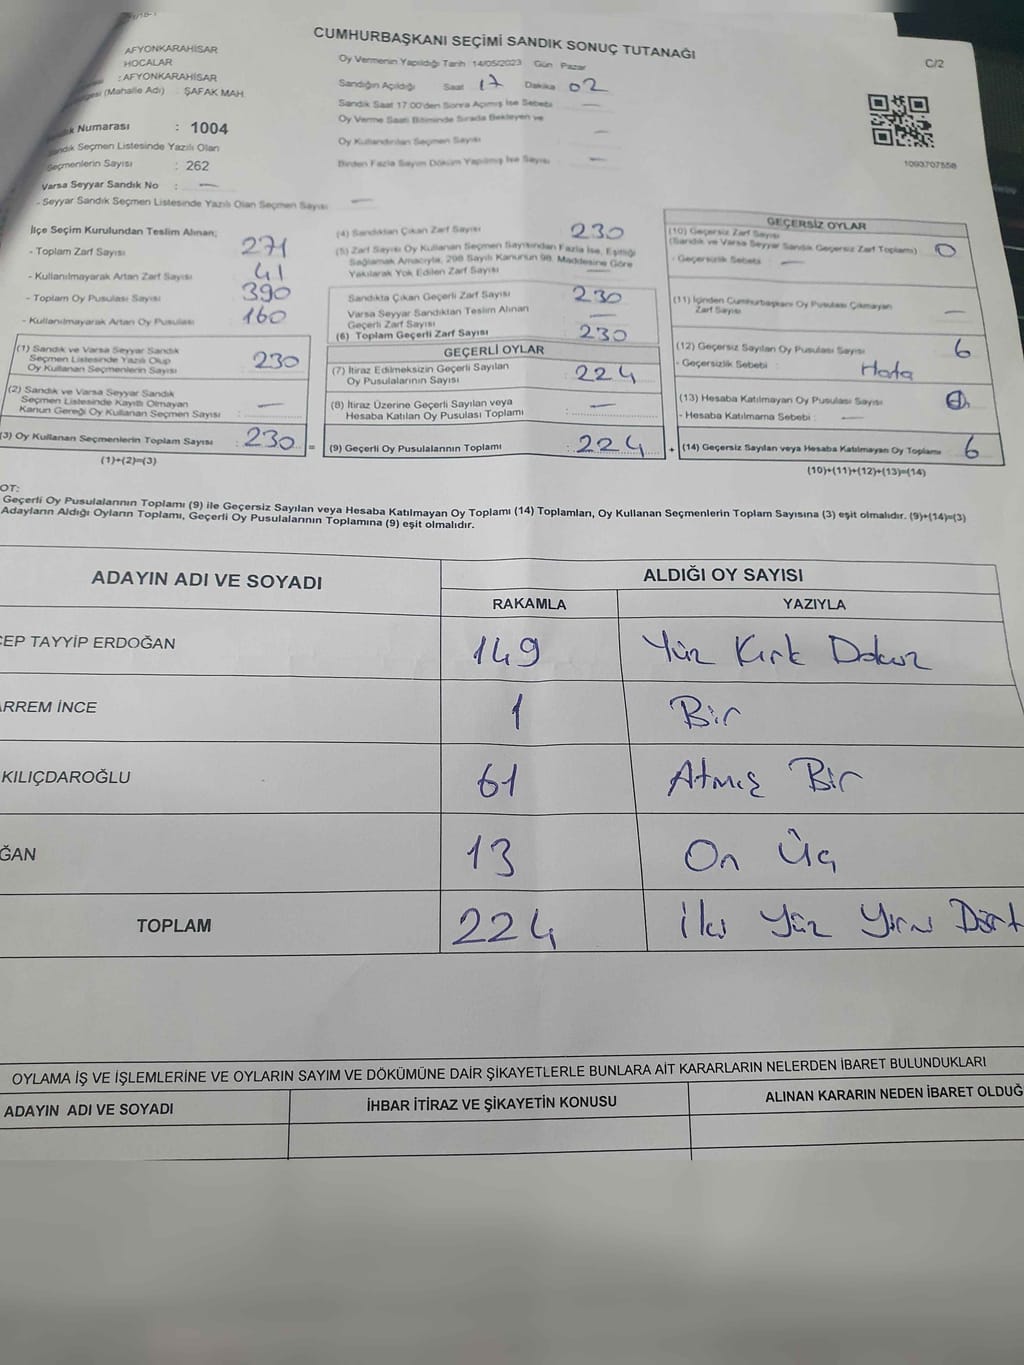 CUMHURBAŞKANI SEÇİMİ SANDIK SONUÇ TUTANAĞI
C/2
AFYONKARAHİSAR
HOCALAR
: AFYONKARAHİSAR
(Mahalle Adı) : ŞAFAK MAH.
Numarası : 1004
Sandık Seçmen Listesinde Yazılı Olan
Seçmenlerin Sayısı : 262
Varsa Seyyar Sandık No : —
- Seyyar Sandık Seçmen Listesinde Yazılı Olan Seçmen Sayısı —
Oy Vermenin Yapıldığı Tarih 14/05/2023 Gün Pazar
Sandığın Açıldığı Saat 17 Dakika 02
Sandık Saat 17:00'den Sonra Açılmış İse Sebebi —
Oy Verme Saati Bitiminde Sırada Bekleyen ve
Oy Kullandırılan Seçmen Sayısı —
Birden Fazla Sayım Döküm Yapılmış İse Sayısı —
1093707558
İlçe Seçim Kurulundan Teslim Alınan;
- Toplam Zarf Sayısı 271
- Kullanılmayarak Artan Zarf Sayısı 41
- Toplam Oy Pusulası Sayısı 390
- Kullanılmayarak Artan Oy Pusulası 160
(1) Sandık ve Varsa Seyyar Sandık
Seçmen Listesinde Yazılı Olup
Oy Kullanan Seçmenlerin Sayısı 230
(2) Sandık ve Varsa Seyyar Sandık
Seçmen Listesinde Kayıtlı Olmayan
Kanun Gereği Oy Kullanan Seçmen Sayısı : —
(3) Oy Kullanan Seçmenlerin Toplam Sayısı : 230 =
(1)+(2)=(3)
(4) Sandıktan Çıkan Zarf Sayısı 230
(5) Zarf Sayısı Oy Kullanan Seçmen Sayısından Fazla İse, Eşitliği
Sağlamak Amacıyla, 298 Sayılı Kanunun 98. Maddesine Göre
Yakılarak Yok Edilen Zarf Sayısı —
Sandıkta Çıkan Geçerli Zarf Sayısı 230
Varsa Seyyar Sandıktan Teslim Alınan
Geçerli Zarf Sayısı —
(6) Toplam Geçerli Zarf Sayısı 230
GEÇERLİ OYLAR
(7) İtiraz Edilmeksizin Geçerli Sayılan
Oy Pusulalarının Sayısı : 224
(8) İtiraz Üzerine Geçerli Sayılan veya
Hesaba Katılan Oy Pusulası Toplamı : —
(9) Geçerli Oy Pusulalarının Toplamı : 224 +
GEÇERSİZ OYLAR
(10) Geçersiz Zarf Sayısı
(Sandık ve Varsa Seyyar Sandık Geçersiz Zarf Toplamı) 0
- Geçersizlik Sebebi : —
(11) İçinden Cumhurbaşkanı Oy Pusulası Çıkmayan
Zarf Sayısı —
(12) Geçersiz Sayılan Oy Pusulası Sayısı 6
- Geçersizlik Sebebi : Hata
(13) Hesaba Katılmayan Oy Pusulası Sayısı
- Hesaba Katılmama Sebebi : —
(14) Geçersiz Sayılan veya Hesaba Katılmayan Oy Toplamı 6
(10)+(11)+(12)+(13)=(14)
OT:
Geçerli Oy Pusulalarının Toplamı (9) ile Geçersiz Sayılan veya Hesaba Katılmayan Oy Toplamı (14) Toplamları, Oy Kullanan Seçmenlerin Toplam Sayısına (3) eşit olmalıdır. (9)+(14)=(3)
Adayların Aldığı Oyların Toplamı, Geçerli Oy Pusulalarının Toplamına (9) eşit olmalıdır.
ADAYIN ADI VE SOYADI ALDIĞI OY SAYISI
RAKAMLA YAZIYLA
CEP TAYYİP ERDOĞAN 149 Yüz Kırk Dokuz
ARREM İNCE 1 Bir
KILIÇDAROĞLU 61 Atmış Bir
ĞAN 13 On Üç
TOPLAM 224 İki Yüz Yirmi Dört
OYLAMA İŞ VE İŞLEMLERİNE VE OYLARIN SAYIM VE DÖKÜMÜNE DAİR ŞİKAYETLERLE BUNLARA AİT KARARLARIN NELERDEN İBARET BULUNDUKLARI
ADAYIN ADI VE SOYADI İHBAR İTİRAZ VE ŞİKAYETİN KONUSU ALINAN KARARIN NEDEN İBARET OLDUĞ